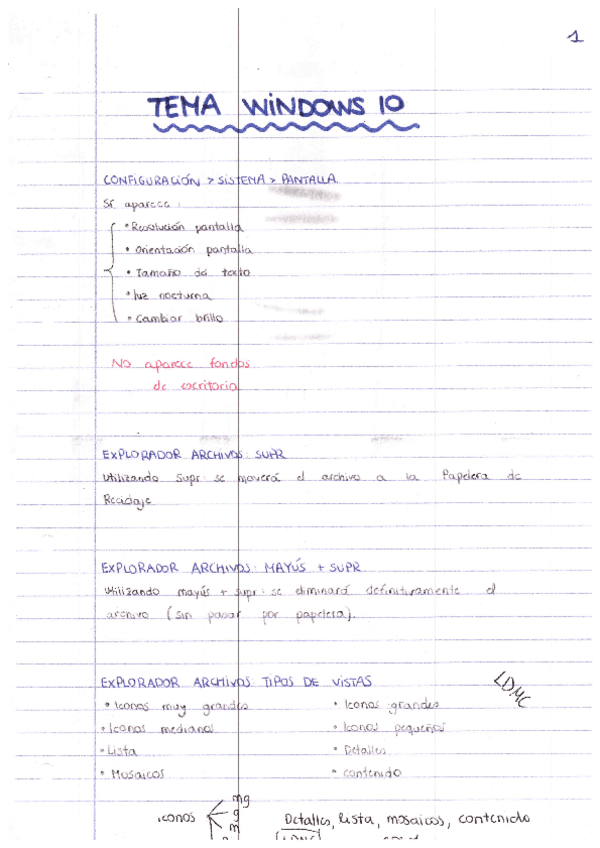 1
TEMA WINDOWS 10
CONFIGURACIÓN > SISTEMA > PANTALLA
Sí aparece:
• Resolución pantalla
• Orientación pantalla
• Tamaño de texto
• luz nocturna
• Cambiar brillo
No aparece fondos
de escritorio
EXPLORADOR ARCHIVOS: SUPR
Utilizando Supr se moverá el archivo a la Papelera de
Reciclaje
EXPLORADOR ARCHIVOS: MAYÚS + SUPR
Utilizando mayús + supr se eliminará definitivamente el
archivo (sin pasar por papelera).
EXPLORADOR ARCHIVOS: TIPOS DE VISTAS
LDMC
• Iconos muy grandes • Iconos grandes
• Iconos medianos • Iconos pequeños
• Lista • Detalles
• Mosaicos • Contenido
mg
iconos g Detalles, lista, mosaicos, contenido
m